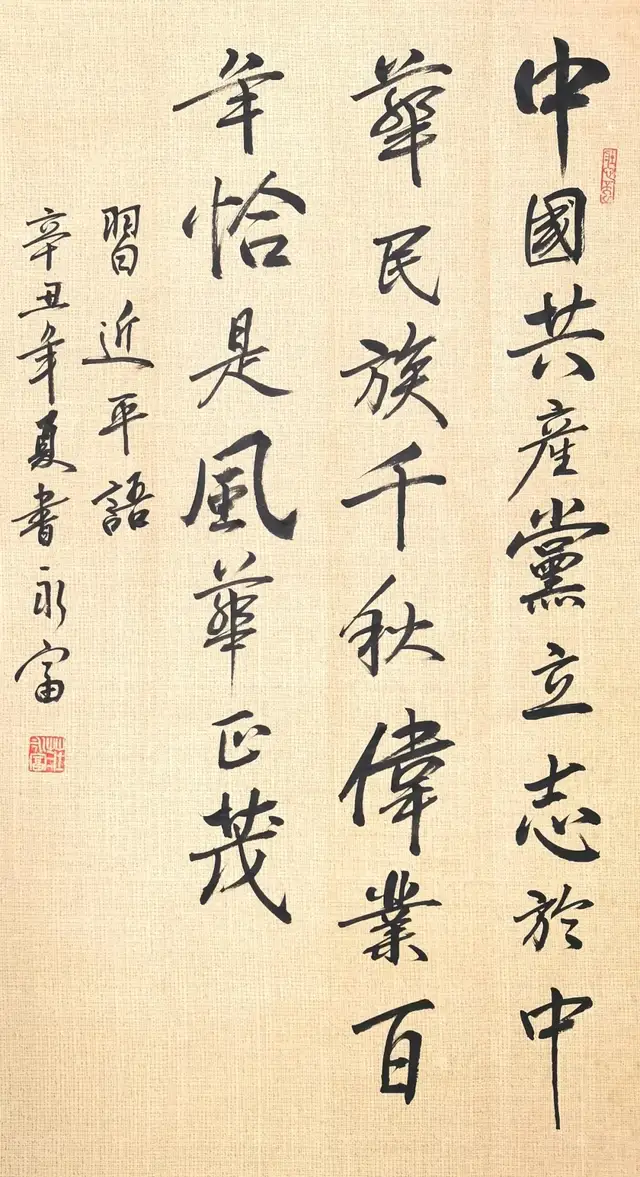 中國共產黨立志於中
華民族千秋偉業百
年恰是風華正茂
習近平語
辛丑年夏書永富